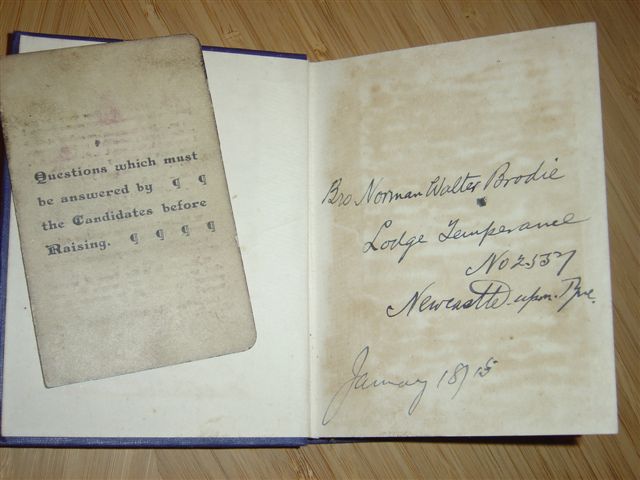 Questions which must
be answered by ¶ ¶
the Candidates before
Raising. ¶ ¶ ¶ ¶
Bro Norman Walter Brodie
Lodge Temperance
No 2557
Newcastle-upon-Tyne.
January 18/15